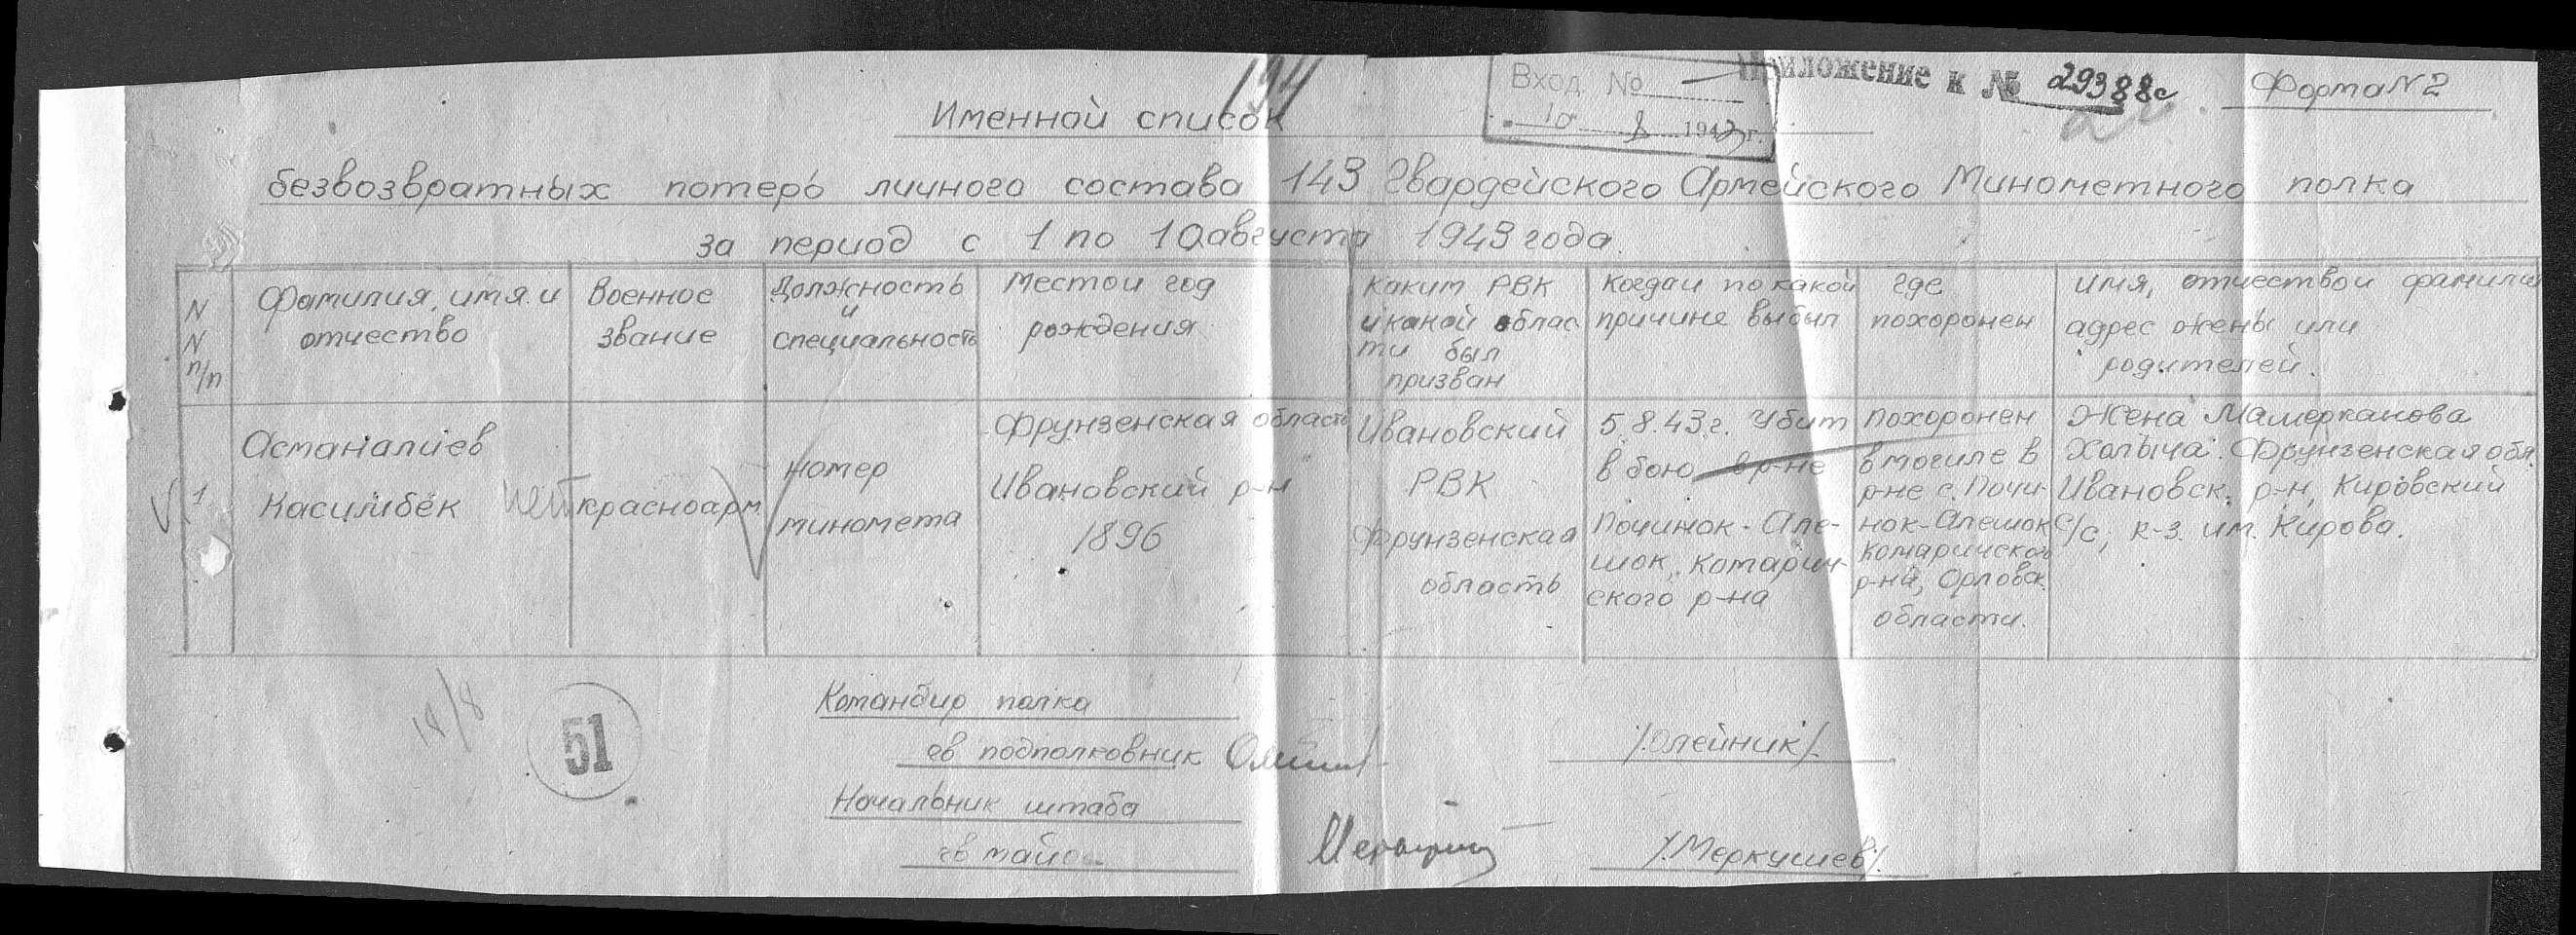 194
Вход. №
10 8 1943 г.
Приложение к № 29388с
Форма N 2
Именной список
безвозвратных потерь личного состава 143 Гвардейского Армейского Минометного полка
за период с 1 по 10 августа 1943 года.
N N п/п
Фамилия, имя и отчество
Военное звание
Должность и специальность
Место и год рождения
Каким РВК и какой облас ти был призван
Когда и по какой причине выбыл
Где похоронен
имя, отчество и фамилия адрес жены или родителей.
1
Асманалиев
Касимбек
нет
красноарм
номер
миномета
Фрунзенская область
Ивановский р-н
1896
Ивановский
РВК
Фрунзенская
область
5.8.43.г. Убит
в бою в р-не
Починок-Але-
шок, Комарич-
ского р-на
похоронен
в могиле в
р-не с. Почи-
нок-Алешок
Комаричского
р-на, Орловск.
области.
Жена Мамерканова
Халыча. Фрунзенская обл.
Ивановск. р-н, Кировский
с/с, к-з. им. Кирова.
14/8
51
Командир полка
гв подполковник
/.Олейник/.
Начальник штаба
гв майор
/.Меркушев/.